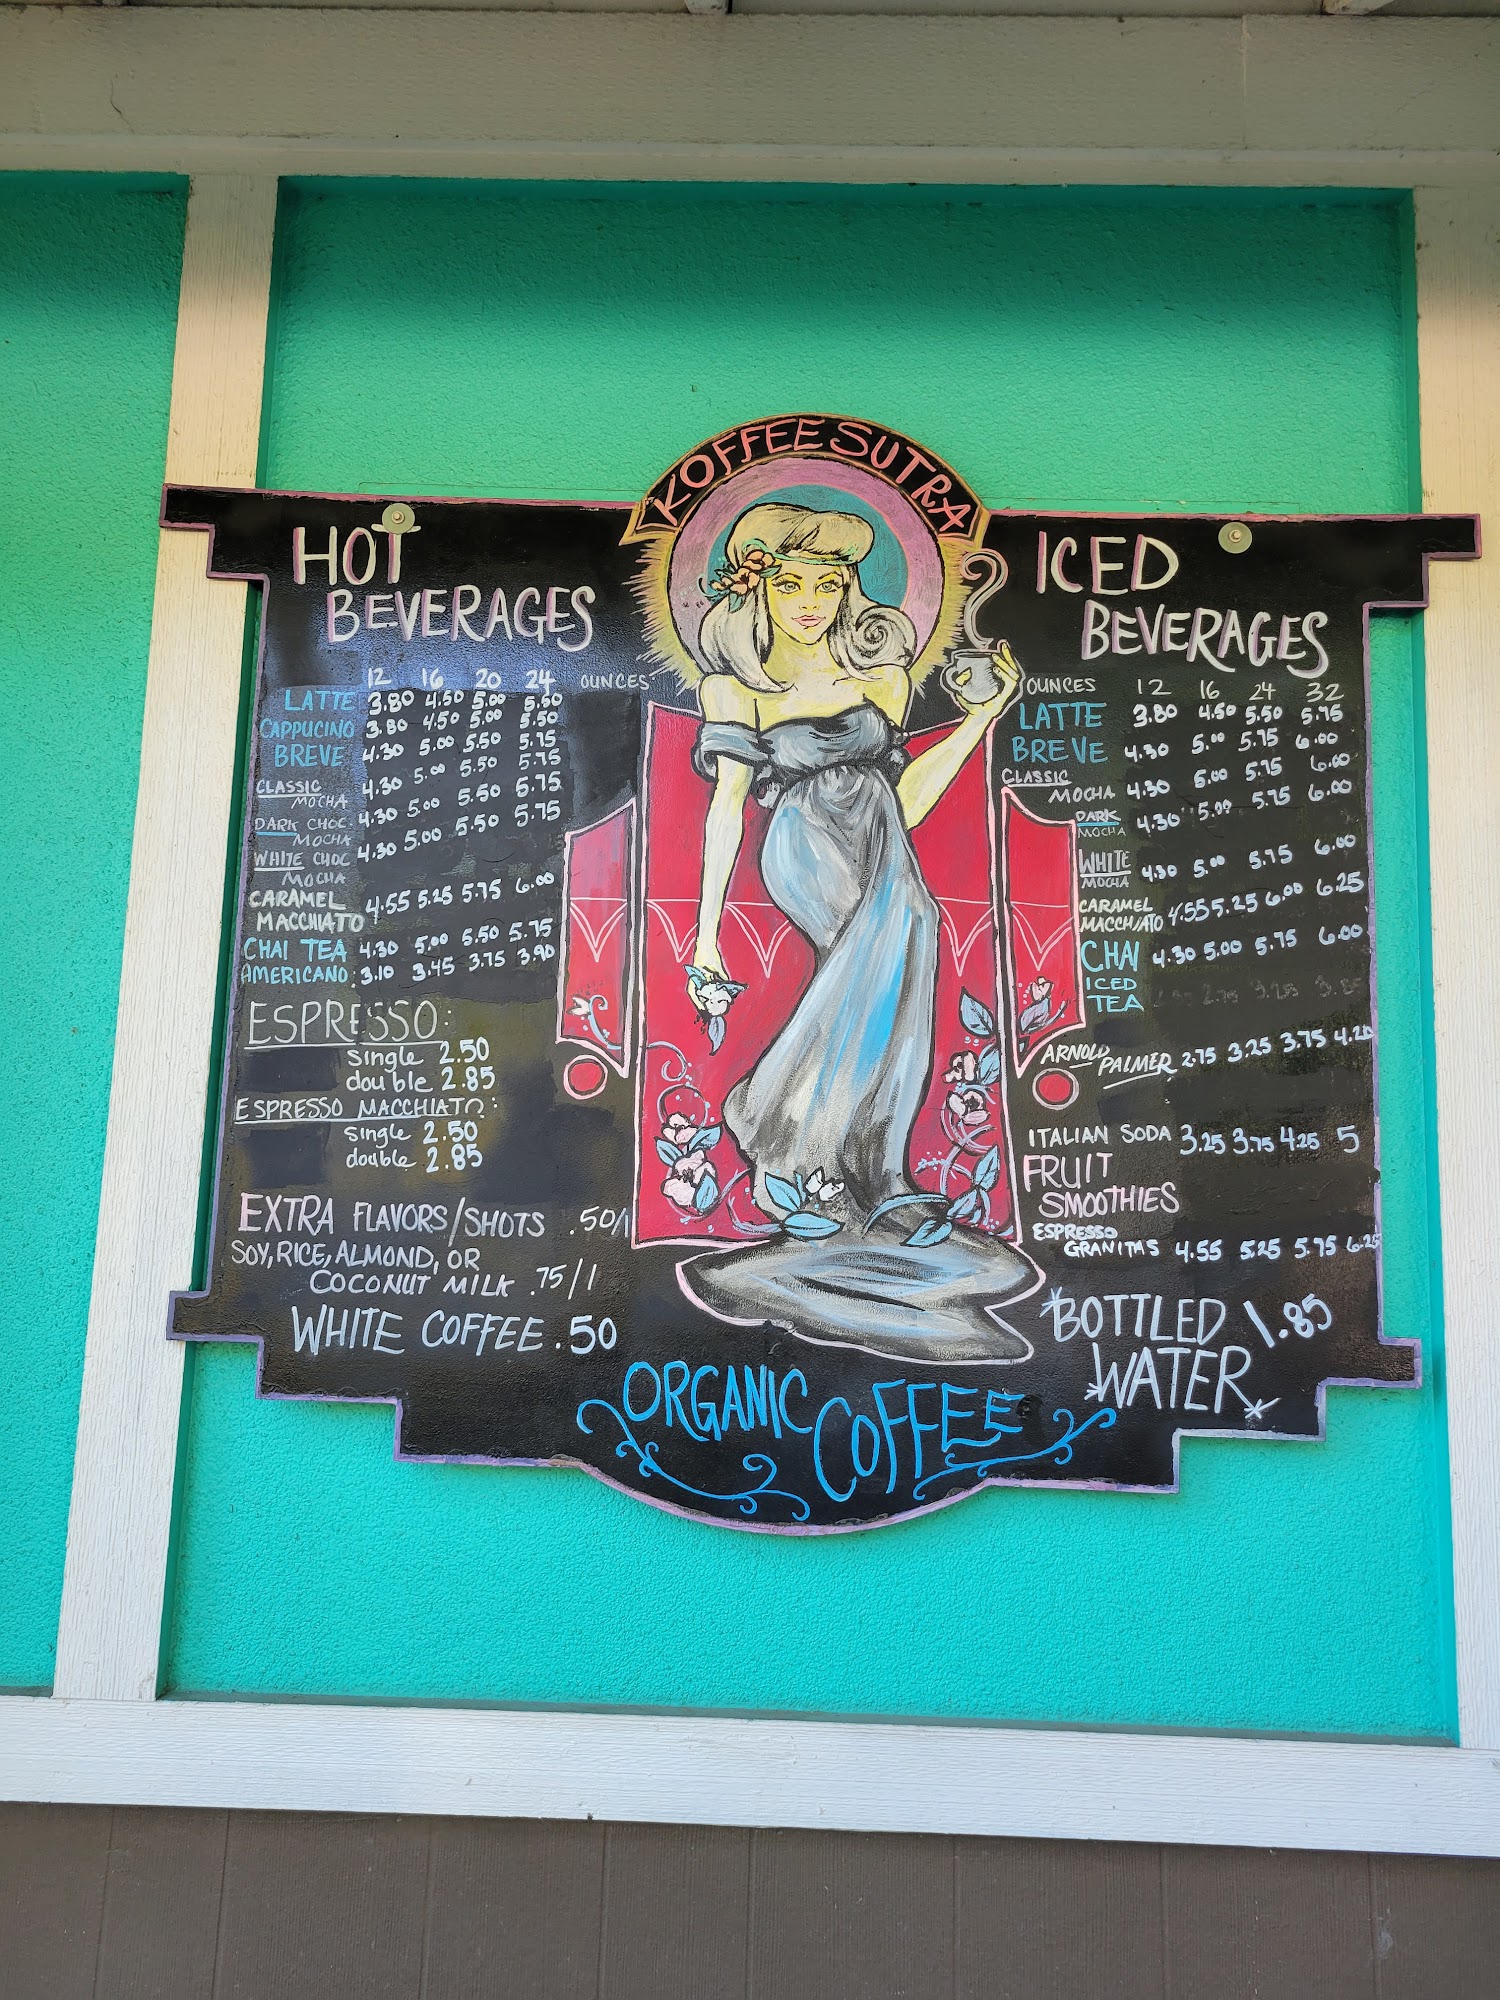 KOFFEE SUTRA
HOT
BEVERAGES
12 16 20 24 OUNCES
LATTE 3.80 4.50 5.00 5.50
CAPPUCINO 3.80 4.50 5.00 5.50
BREVE 4.30 5.00 5.50 5.75
CLASSIC
MOCHA 4.30 5.00 5.50 5.75
DARK CHOC.
MOCHA 4.30 5.00 5.50 5.75
WHITE CHOC
MOCHA 4.30 5.00 5.50 5.75
CARAMEL
MACCHIATO 4.55 5.25 5.75 6.00
CHAI TEA 4.30 5.00 5.50 5.75
AMERICANO: 3.10 3.45 3.75 3.90
ESPRESSO:
single 2.50
double 2.85
ESPRESSO MACCHIATO:
single 2.50
double 2.85
EXTRA FLAVORS/SHOTS .50/1
SOY, RICE, ALMOND, OR
COCONUT MILK .75/1
WHITE COFFEE .50
ICED
BEVERAGES
OUNCES 12 16 24 32
LATTE 3.80 4.50 5.50 5.75
BREVE 4.30 5.00 5.75 6.00
CLASSIC
MOCHA 4.30 5.00 5.75 6.00
DARK
MOCHA 4.30 5.00 5.75 6.00
WHITE
MOCHA 4.30 5.00 5.75 6.00
CARAMEL
MACCHIATO 4.55 5.25 6.00 6.25
CHAI 4.30 5.00 5.75 6.00
ICED
TEA 2.75 3.25
ARNOLD
PALMER 2.75 3.25 3.75 4.20
ITALIAN SODA 3.25 3.75 4.25 5
FRUIT
SMOOTHIES
ESPRESSO
GRANITAS 4.55 5.25 5.75 6.25
*BOTTLED 1.85
*WATER*
ORGANIC COFFEE